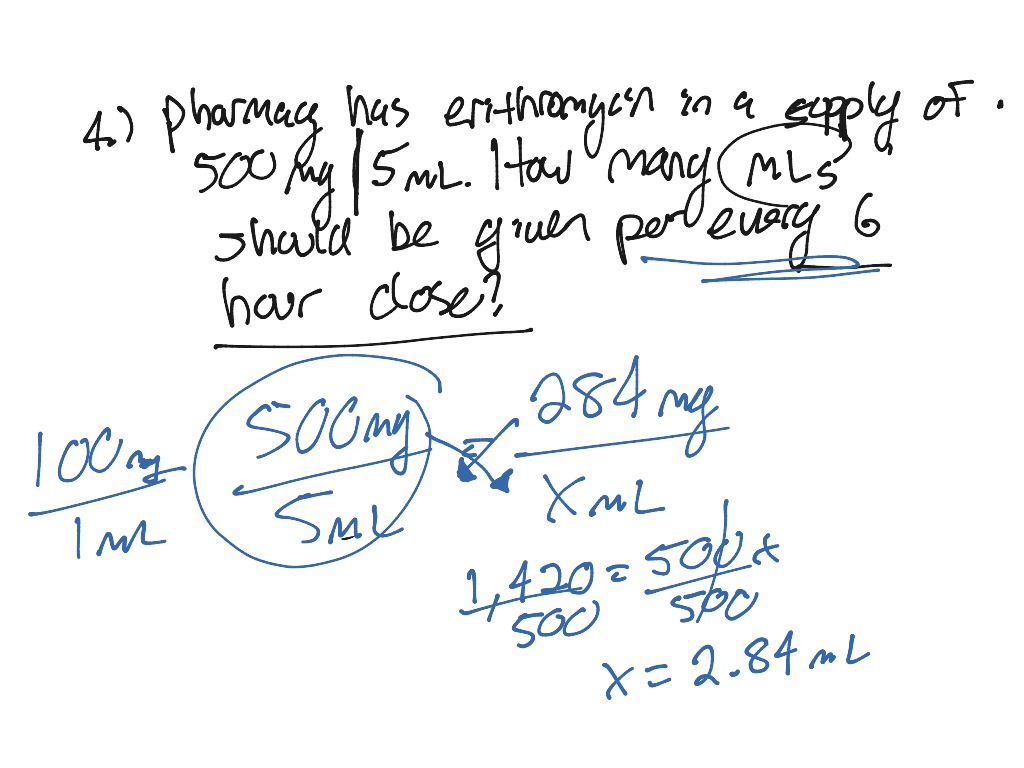 4.) Pharmacy has erithromycin in a supply of
500 mg | 5 mL. How many mLs
should be given per every 6
hour dose?
100 mg / 1 mL
500 mg / 5 mL = 284 mg / X mL
1,420 / 500 = 500 x / 500
x = 2.84 mL